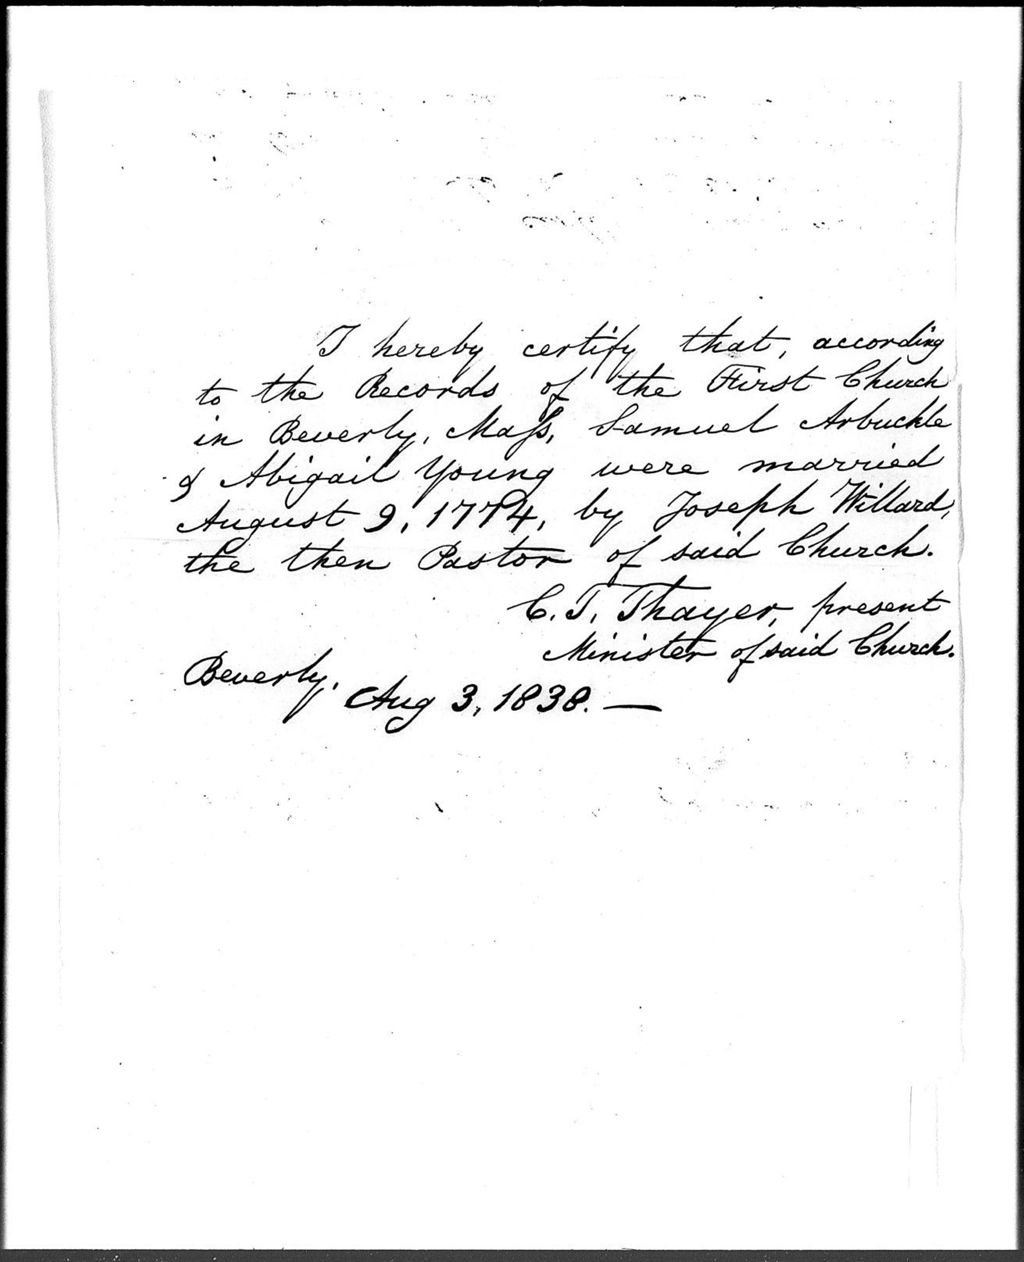 I hereby certify that, according
to the Records of the First Church
in Beverly, Mass, Samuel Arbuckle
& Abigail Young were married
August 9, 1774, by Joseph Willard,
the then Pastor of said Church.
C. T. Thayer, present
Minister of said Church.
Beverly. Aug 3, 1838. —